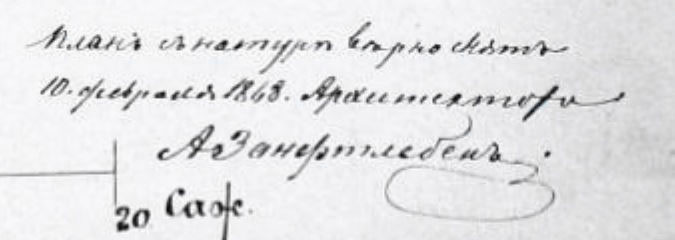 Планъ съ натуры вѣрно снятъ
10. февраля 1868. Архитекторъ
А Занфтлебенъ.
20 Саж.